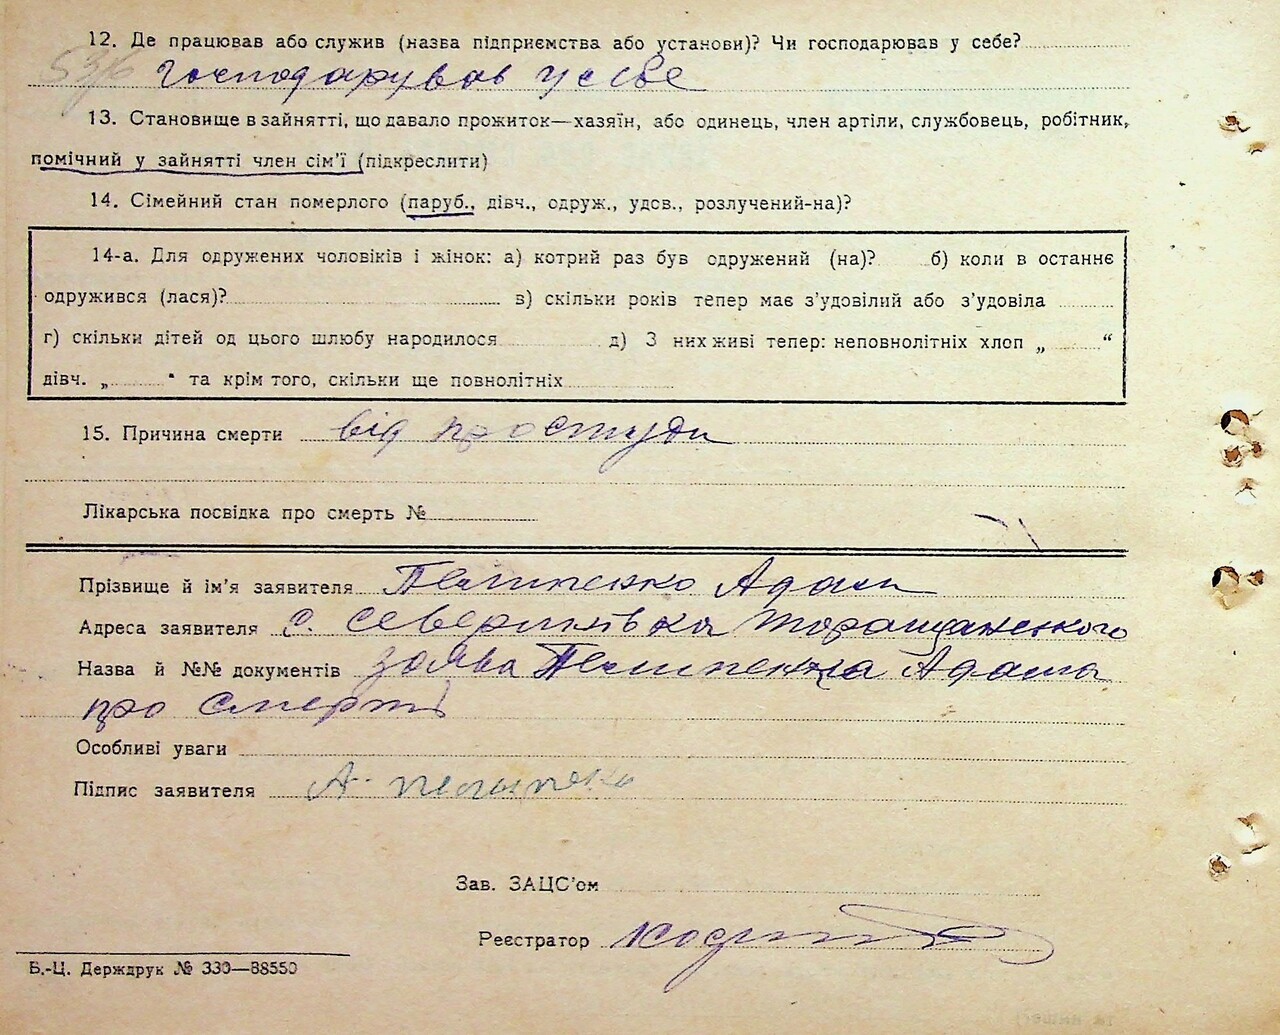 12. Де працював або служив (назва підприємства або установи)? Чи господарював у себе?
53/6 господарував у себе
13. Становище в зайнятті, що давало прожиток—хазяїн, або одинець, член артіли, службовець, робітник,
помічний у зайнятті член сім'ї (підкреслити)
14. Сімейний стан померлого (паруб., дівч., одруж., удов., розлучений-на)?
14-а. Для одружених чоловіків і жінок: а) котрий раз був одружений (на)? б) коли в останнє
одружився (лася)? в) скільки років тепер має з'удовілий або з'удовіла
г) скільки дітей од цього шлюбу народилося д) З них живі тепер: неповнолітніх хлоп „ “
дівч. „ “ та крім того, скільки ще повнолітніх
15. Причина смерти від простуди
Лікарська посвідка про смерть №
Прізвище й ім'я заявителя Пелипенко Адам
Адреса заявителя с. Северинівка Таращанського
Назва й №№ документів заява Пелипенка Адама
про смерть
Особливі уваги
Підпис заявителя А. Пелипенко
Зав. ЗАЦС'ом
Реєстратор
Б.-Ц. Держдрук № 330—88550